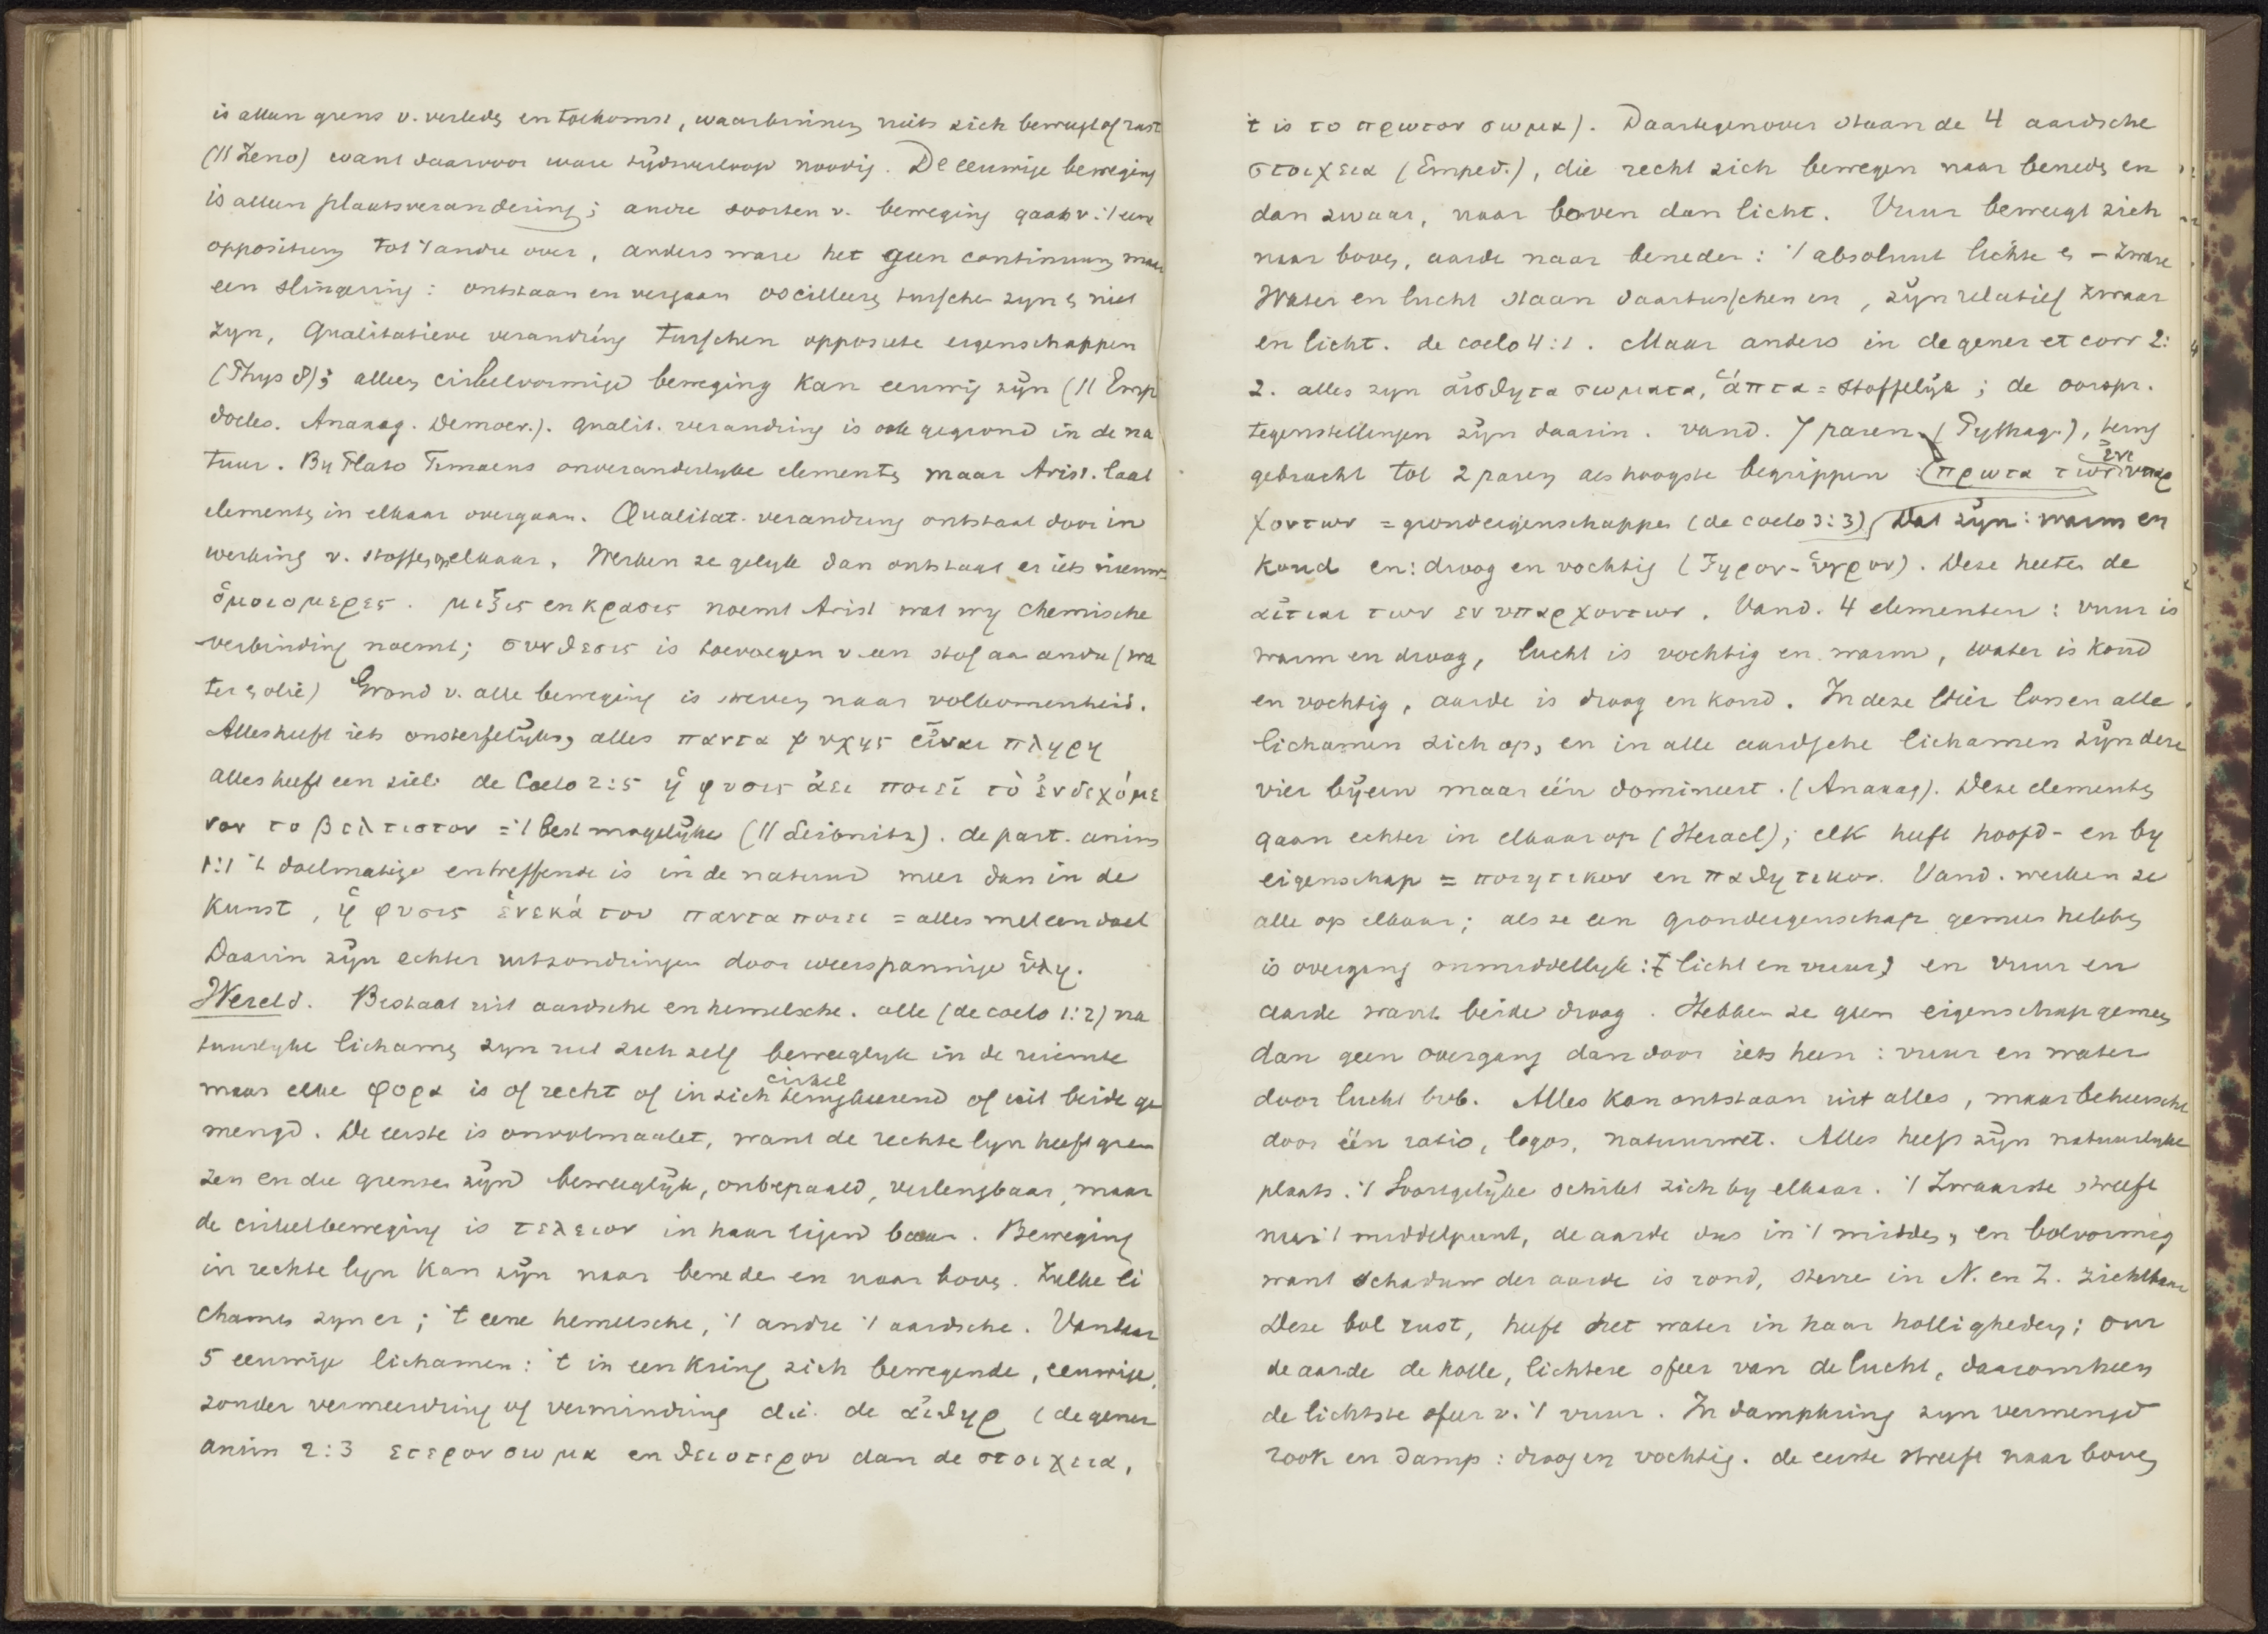 is alleen grens v. verleden en toekomst, waarbinnen niets zich beweegt of rust
(// Zeno) want daarvoor ware tijdsverloop noodig. De eeuwige beweging
is alleen plaatsverandering; andre soorten v. beweging gaan v. 't eene
oppositum tot 't andre over, anders ware het geen continuum maar
een slingering: ontstaan en vergaan oscilleeren tusschen zyn en niet
zyn, Qualitatieve verandring tusschen opposite eigenschappen
(Phys 8); alleen cirkelvormige beweging kan eeuwig zijn (// Emp
docles. Anaxag. Democr.). qualit. verandring is ook gegrond in de na
tuur. By Plato Timaeus onveranderlyke elementen maar Arist. laat
elementen in elkaar overgaan. Qualitat. verandring ontstaat door in
werking v. stoffen op elkaar. Werken ze gelyk dan ontstaat er iets nieuws
ὁμοιομερες. μιξις en κρασις noemt Arist wat wy chemische
verbinding noemt; συνθεσις is toevoegen v een stof aan andre (wa
ter en olie) Grond v. alle beweging is streven naar volkomenheid.
Alles heeft iets onsterfelijks, alles παντα ψυχης εἶναι πληρη
alles heeft een ziel. de Coelo 2:5 ἡ φυσις ἀει ποιεῖ τὸ ἐνδεχόμε
νον το βελτιστον = 't best mogelijke (// Leibnitz). de part. anim
1:1 't doelmatige en treffende is in de natuur meer dan in de
kunst, ἡ φυσις ἑνεκά του παντα ποιει = alles met een doel
Daarin zijn echter uitzondringen door weerspannige ὑλη.
Wereld. Bestaat uit aardsche en hemelsche. alle (de coelo 1:2) na
tuurlyke lichamen zyn uit zich zelf beweeglyk in de ruimte
cirkel
maar elke φορα is of recht of in zich terugkeerend of uit beide ge
mengd. De eerste is onvolmaakt, want de rechte lyn heeft gren
zen en die grenzen zijn beweeglijk, onbepaald, verlengbaar, maar
de cirkelbeweging is τελειον in haar eigen baan. Beweging
in rechte lyn kan zijn naar beneden en naar boven. Zulke li
chamen zyn er; 't eene hemelsche, 't andre 't aardsche. Vandaar
5 eeuwige lichamen: 't in een kring zich bewegende, eeuwige,
zonder vermeerdring of vermindring d.i. de αἰθηρ (de gener
anim 2:3 ετερον σωμα en θειοτερον dan de στοιχεια,
't is το πρωτον σωμα). Daartegenover staan de 4 aardsche
στοιχεια (Emped.), die recht zich bewegen naar beneden en
dan zwaar, naar boven dan licht. Vuur beweegt zich
naar boven, aarde naar beneden: 't absoluut lichte en - zware
Water en lucht staan daartusschen in, zijn relatief zwaar
en licht. de coelo 4:1. Maar anders in de gener et corr 2:
2. alles zyn αἰσθητα σωματα, ἁπτα = stoffelijk; de oorspr.
tegenstellingen zijn daarin. vand. 7 paren (Pythag.), terug
ενυ
gebracht tot 2 paren als hoogste begrippen: (πρωτα των υπαρ
χοντων = grondeigenschappen (de coelo 3:3) Dat zijn: warm en
koud en: droog en vochtig (ξηρον - ὑγρον). Deze heeten de
αἰτιαι των ενυπαρχοντων. Vand. 4 elementen: vuur is
warm en droog, lucht is vochtig en warm, water is koud
en vochtig, aarde is droog en koud. In deze vier lossen alle
lichamen zich op, en in alle aardsche lichamen zijn deze
vier bijeen maar één domineert. (Anaxag). Deze elementen
gaan echter in elkaar op (Heracl); elk heeft hoofd- en by
eigenschap = ποιητικον en παθητικον. Vand. werken ze
alle op elkaar; als ze een grondeigenschap gemeen hebben
is overgang onmiddellyk: licht en vuur, en vuur en
aarde want beide droog. Hebben ze geen eigenschap gemeen
dan geen overgang dan door iets heen: vuur en water
door lucht bvb. Alles kan ontstaan uit alles, maar beheerscht
door één ratio, logos, natuurwet. Alles heeft zijn natuurlyke
plaats. 't Soortgelijke schikt zich by elkaar. 't Zwaarste streeft
naar 't middelpunt, de aarde dus in 't midden, en bolvormig
want schaduw der aarde is rond, sterre in N. en Z. zichtbaar
Deze bol rust, heeft het water in haar holligheden; om
de aarde de holle, lichtere sfeer van de lucht, daaromheen
de lichtste sfeer v. 't vuur. In dampkring zyn vermengd
rook en damp: droog en vochtig. de eerste streeft naar boven